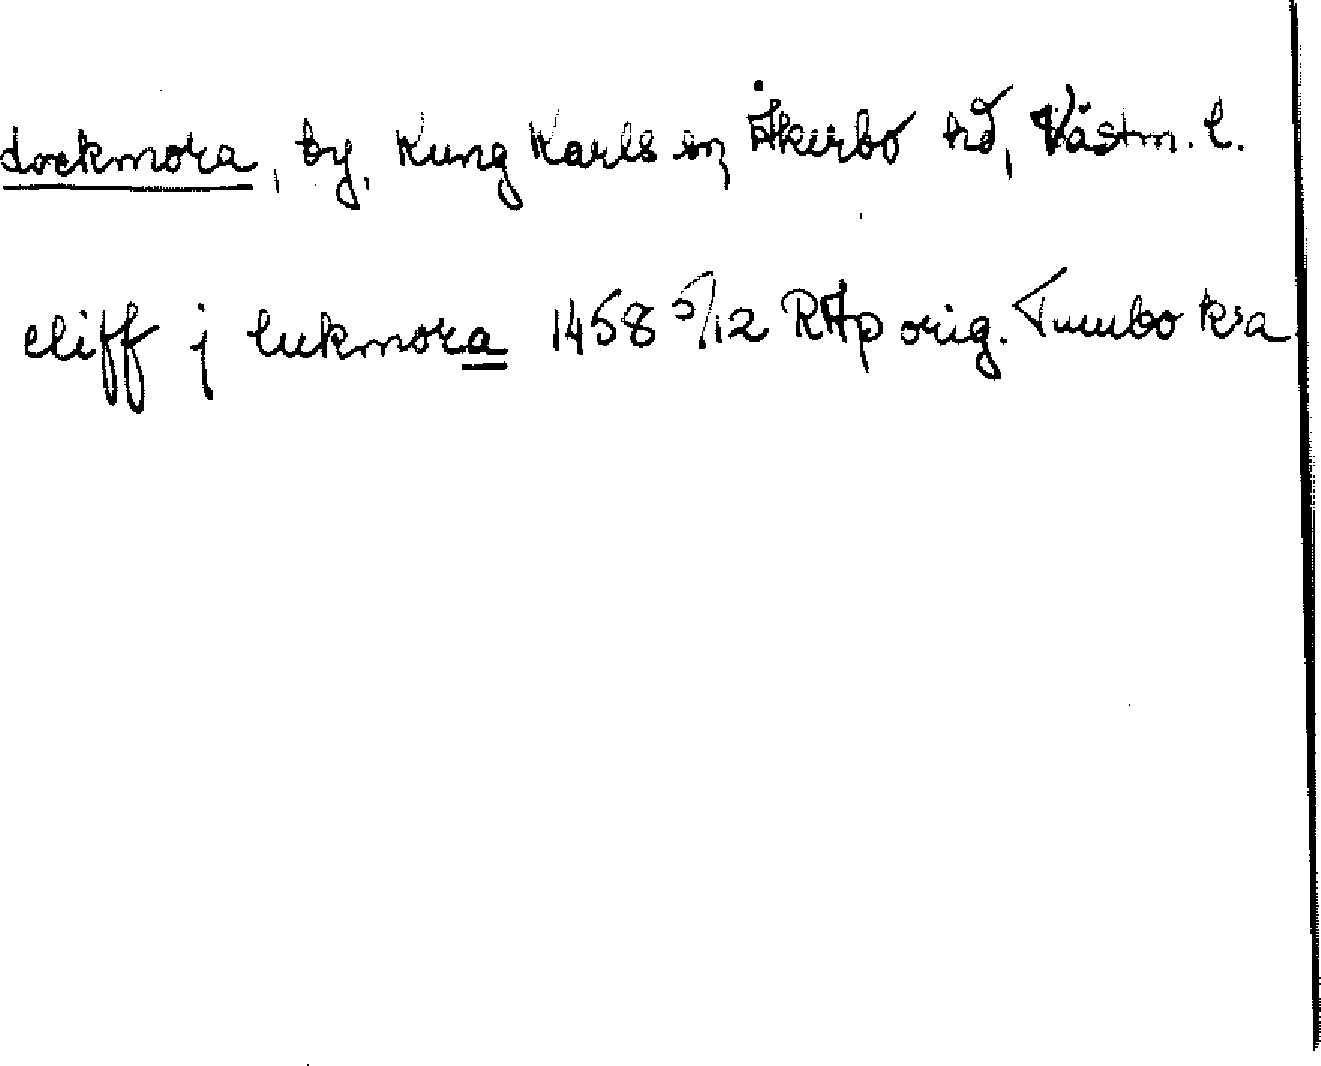 Lockmora, by, Kung Karls sn, Åkerbo hd, Västm. l.
eliff j lukmora 1458 5/12 RAp orig. Tumbo k:a